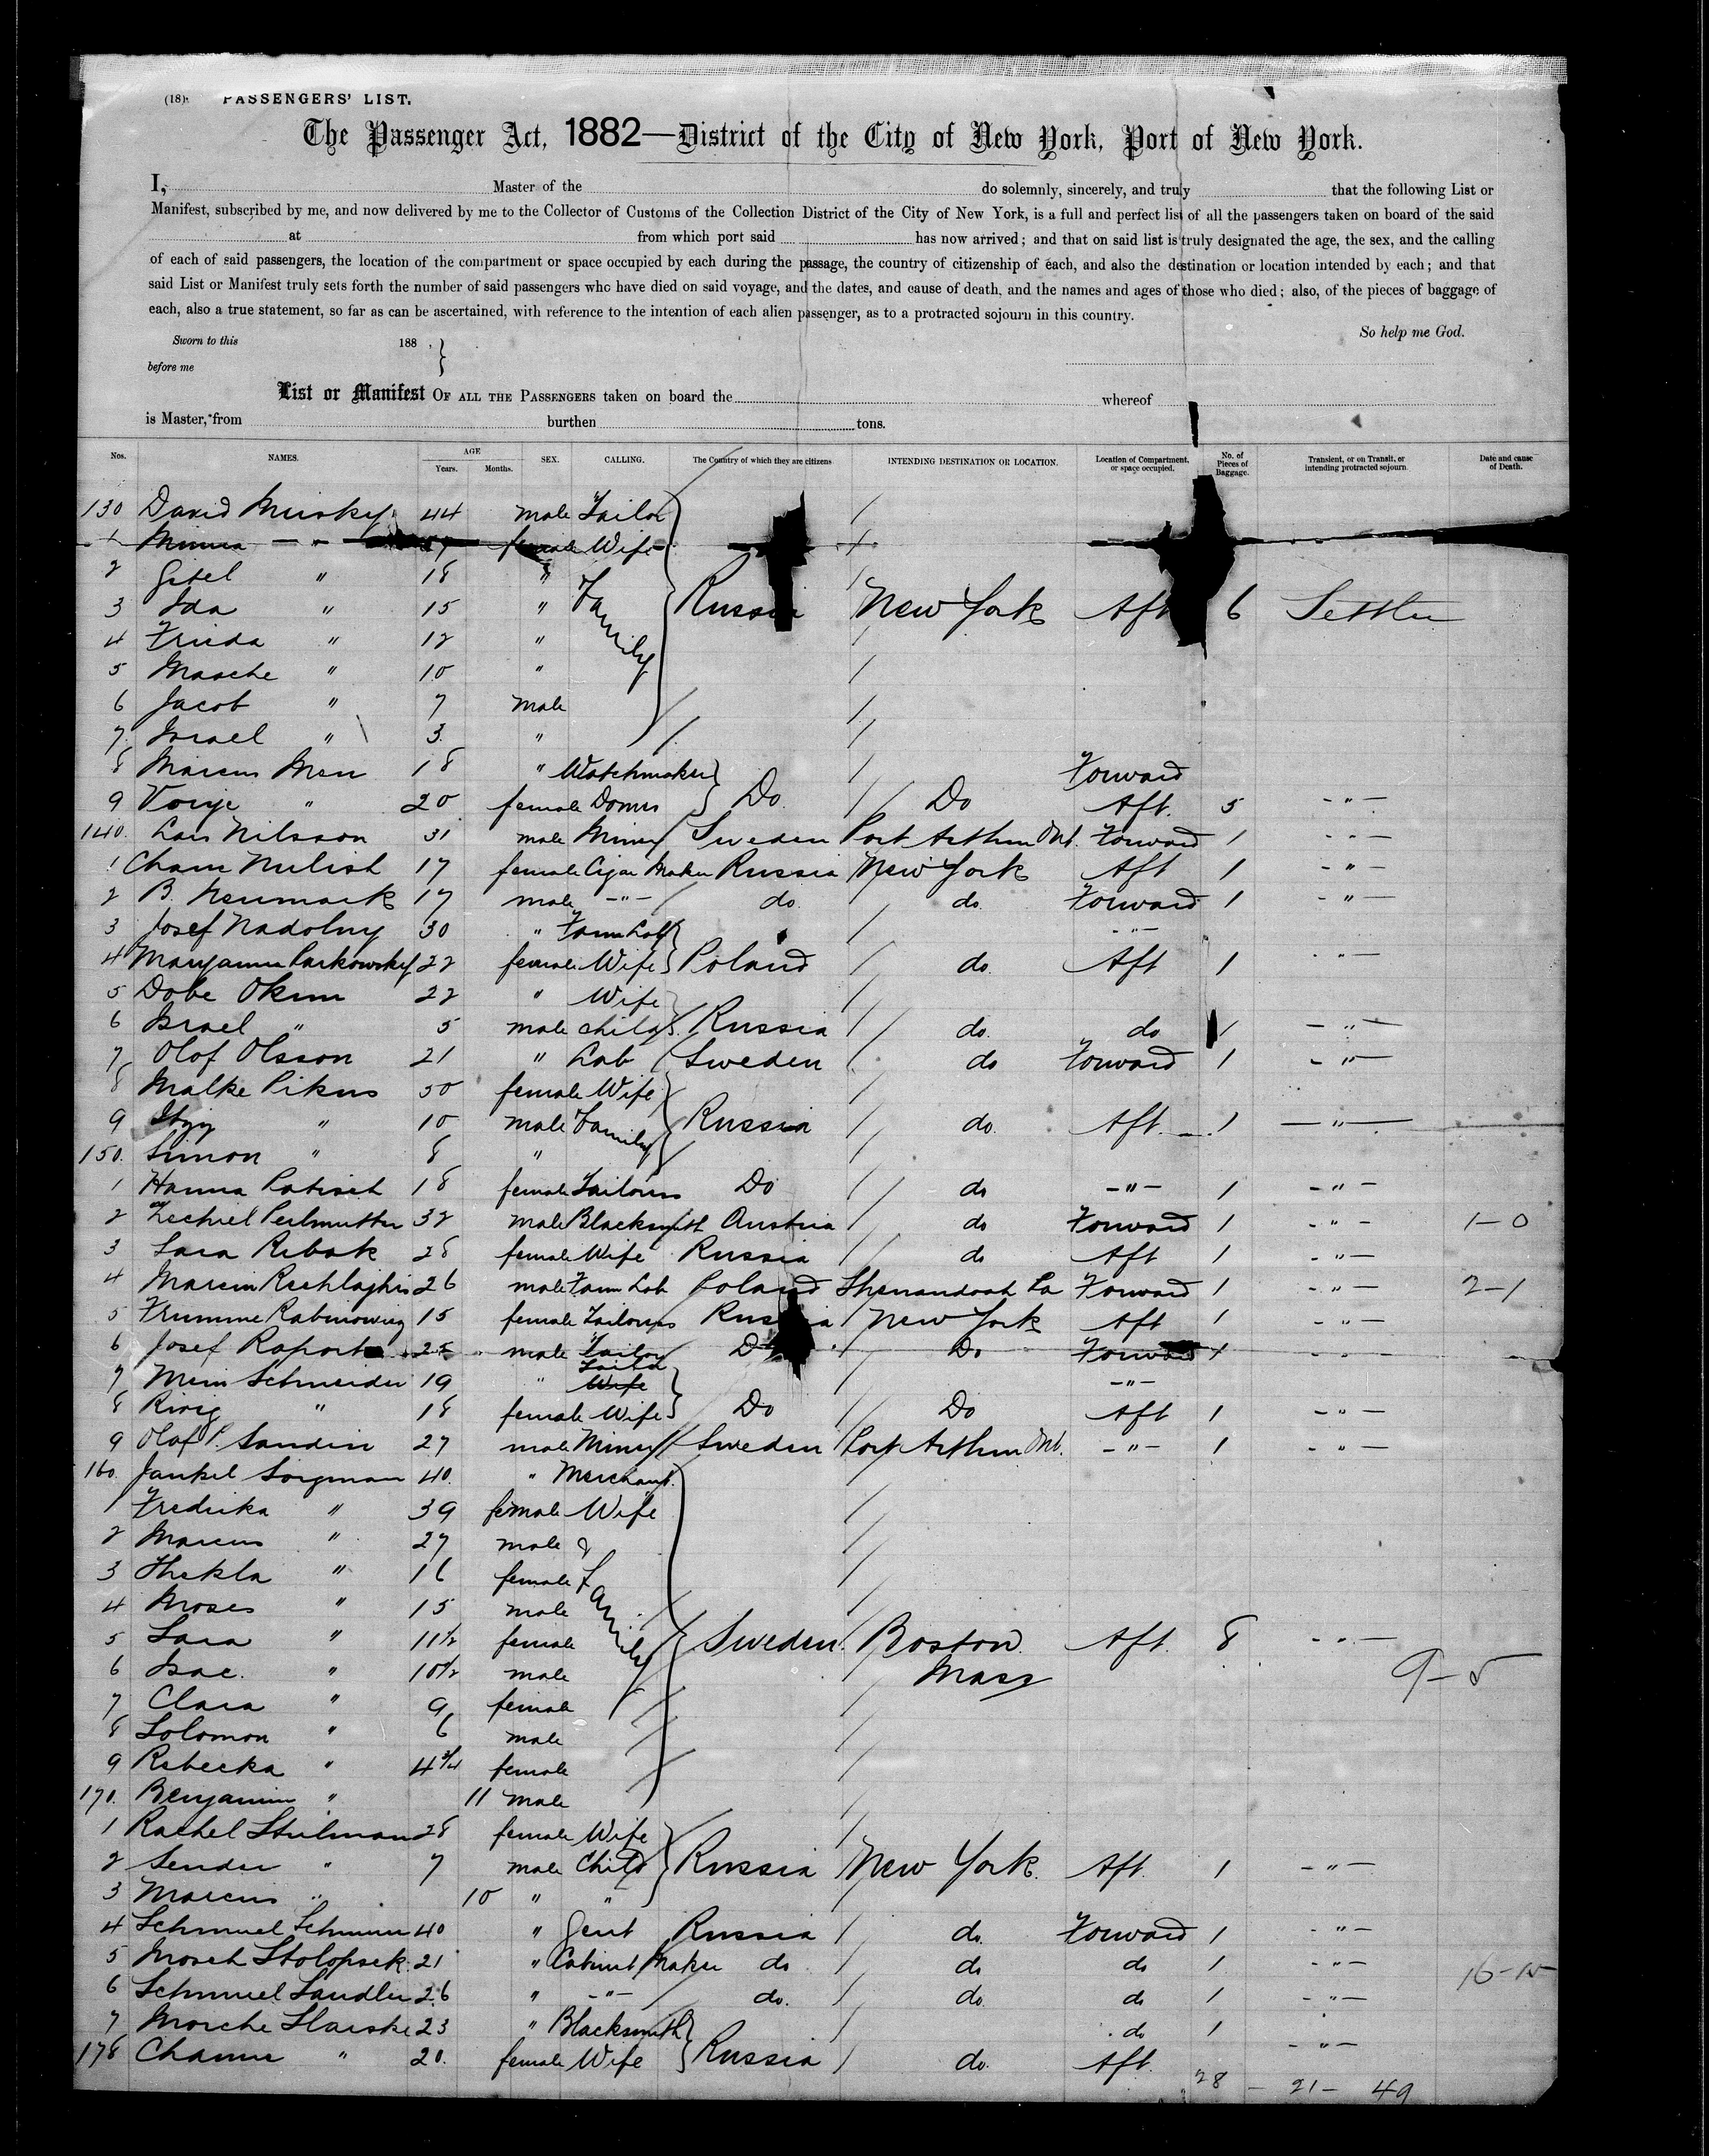 (18) PASSENGERS' LIST.
The Passenger Act, 1882—District of the City of New York, Port of New York.
I, Master of the do solemnly, sincerely, and truly that the following List or
Manifest, subscribed by me, and now delivered by me to the Collector of Customs of the Collection District of the City of New York, is a full and perfect list of all the passengers taken on board of the said
at from which port said has now arrived; and that on said list is truly designated the age, the sex, and the calling
of each of said passengers, the location of the compartment or space occupied by each during the passage, the country of citizenship of each, and also the destination or location intended by each; and that
said List or Manifest truly sets forth the number of said passengers who have died on said voyage, and the dates, and cause of death, and the names and ages of those who died; also, of the pieces of baggage of
each, also a true statement, so far as can be ascertained, with reference to the intention of each alien passenger, as to a protracted sojourn in this country.
So help me God.
Sworn to this 188 , }
before me
List or Manifest OF ALL THE PASSENGERS taken on board the whereof
is Master, from burthen tons.
Nos. NAMES. AGE Years. Months. SEX. CALLING. The Country of which they are citizens INTENDING DESTINATION OR LOCATION. Location of Compartment, or space occupied. No. of Pieces of Baggage. Transient, or on Transit, or intending protracted sojourn. Date and cause of Death.
130 David 44 male Tailor
1 Minna — " — female Wife
2 Gitel " 18 "
3 Ida " 15 " Family Russia New York Aft 6 Settler
4 Frieda " 12 "
5 Masche " 10 "
6 Jacob " 7 male
7 Israel " 3 "
8 Marcus Men 18 " Watchmaker Forward
9 " 20 female Domes Do Do Aft. 5 - " -
140. Lars Nilsson 31 male Miner Sweden Port Arthur Ont. Forward 1 - " -
1 17 female Cigar Maker Russia New York Aft 1 - " -
2 B. Neumark 17 male - " - do. do. Forward 1 - " -
3 Josef Nadolny 30 " Farm Lab - " -
4 22 female Wife Poland do. Aft 1 - " -
5 Dobe Okun 22 " Wife
6 Israel " 5 male child Russia do. do 1 - " -
7 Olof Olsson 21 " Lab Sweden do Forward 1 - " -
8 Malke Pikus 30 female Wife
9 " 10 male Family Russia do. Aft. 1 — " —
150. Simon " 8 "
1 Hanna 18 female Tailoress Do do - " - 1 - " -
2 Perlmutter 32 male Blacksmith Austria do Forward 1 - " - 1-0
3 Sara Ribak 28 female Wife Russia do Aft 1 - " -
4 26 male Farm Lab Poland Shenandoah Pa Forward 1 - " - 2-1
5 Frumme Rabinowig 15 female Tailoress Russia New York Aft 1 - " -
6 Josef Raport 25 male Tailor Do Do Forward 1 - " -
7 Schneider 19 " Tailor Wife - " -
8 " 18 female Wife Do Do Aft 1 - " -
9 Olof P. Sandin 27 male Miner Sweden Port Arthur Ont. - " - 1 - " -
160. Jankel Sorgman 40. " Merchant.
1 Fredrika " 39 female Wife
2 Marcus " 27 male &
3 Thekla " 16 female family
4 Moses " 15 male
5 Sara " 11½ female Sweden. Boston Aft. 8 - " -
6 Isac. " 10½ male Mass 9-5
7 Clara " 9 female
8 Solomon " 6 male
9 Rebecka " 4¾ female
170. Benjamin " 11 male
1 Rachel Stulman 28 female Wife
2 Sender " 7 male Child Russia New York. Aft. 1 - " -
3 Marcus " 10 " "
4 Schmuel 40 " Gent Russia do. Forward 1 - " -
5 Mosch Stolopsek. 21 " Cabinet Maker do do do 1 - " -
16-15
6 Schmuel Sandler 26 " - " - do. do. do 1 - " -
7 Morche 23 " Blacksmith do 1
178 Channe " 20. female Wife Russia do. Aft. - " -
28 - 21 - 49